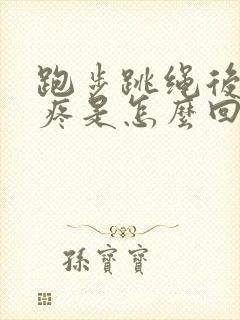 跑步跳绳後
疼是怎麼回
孫寶寶